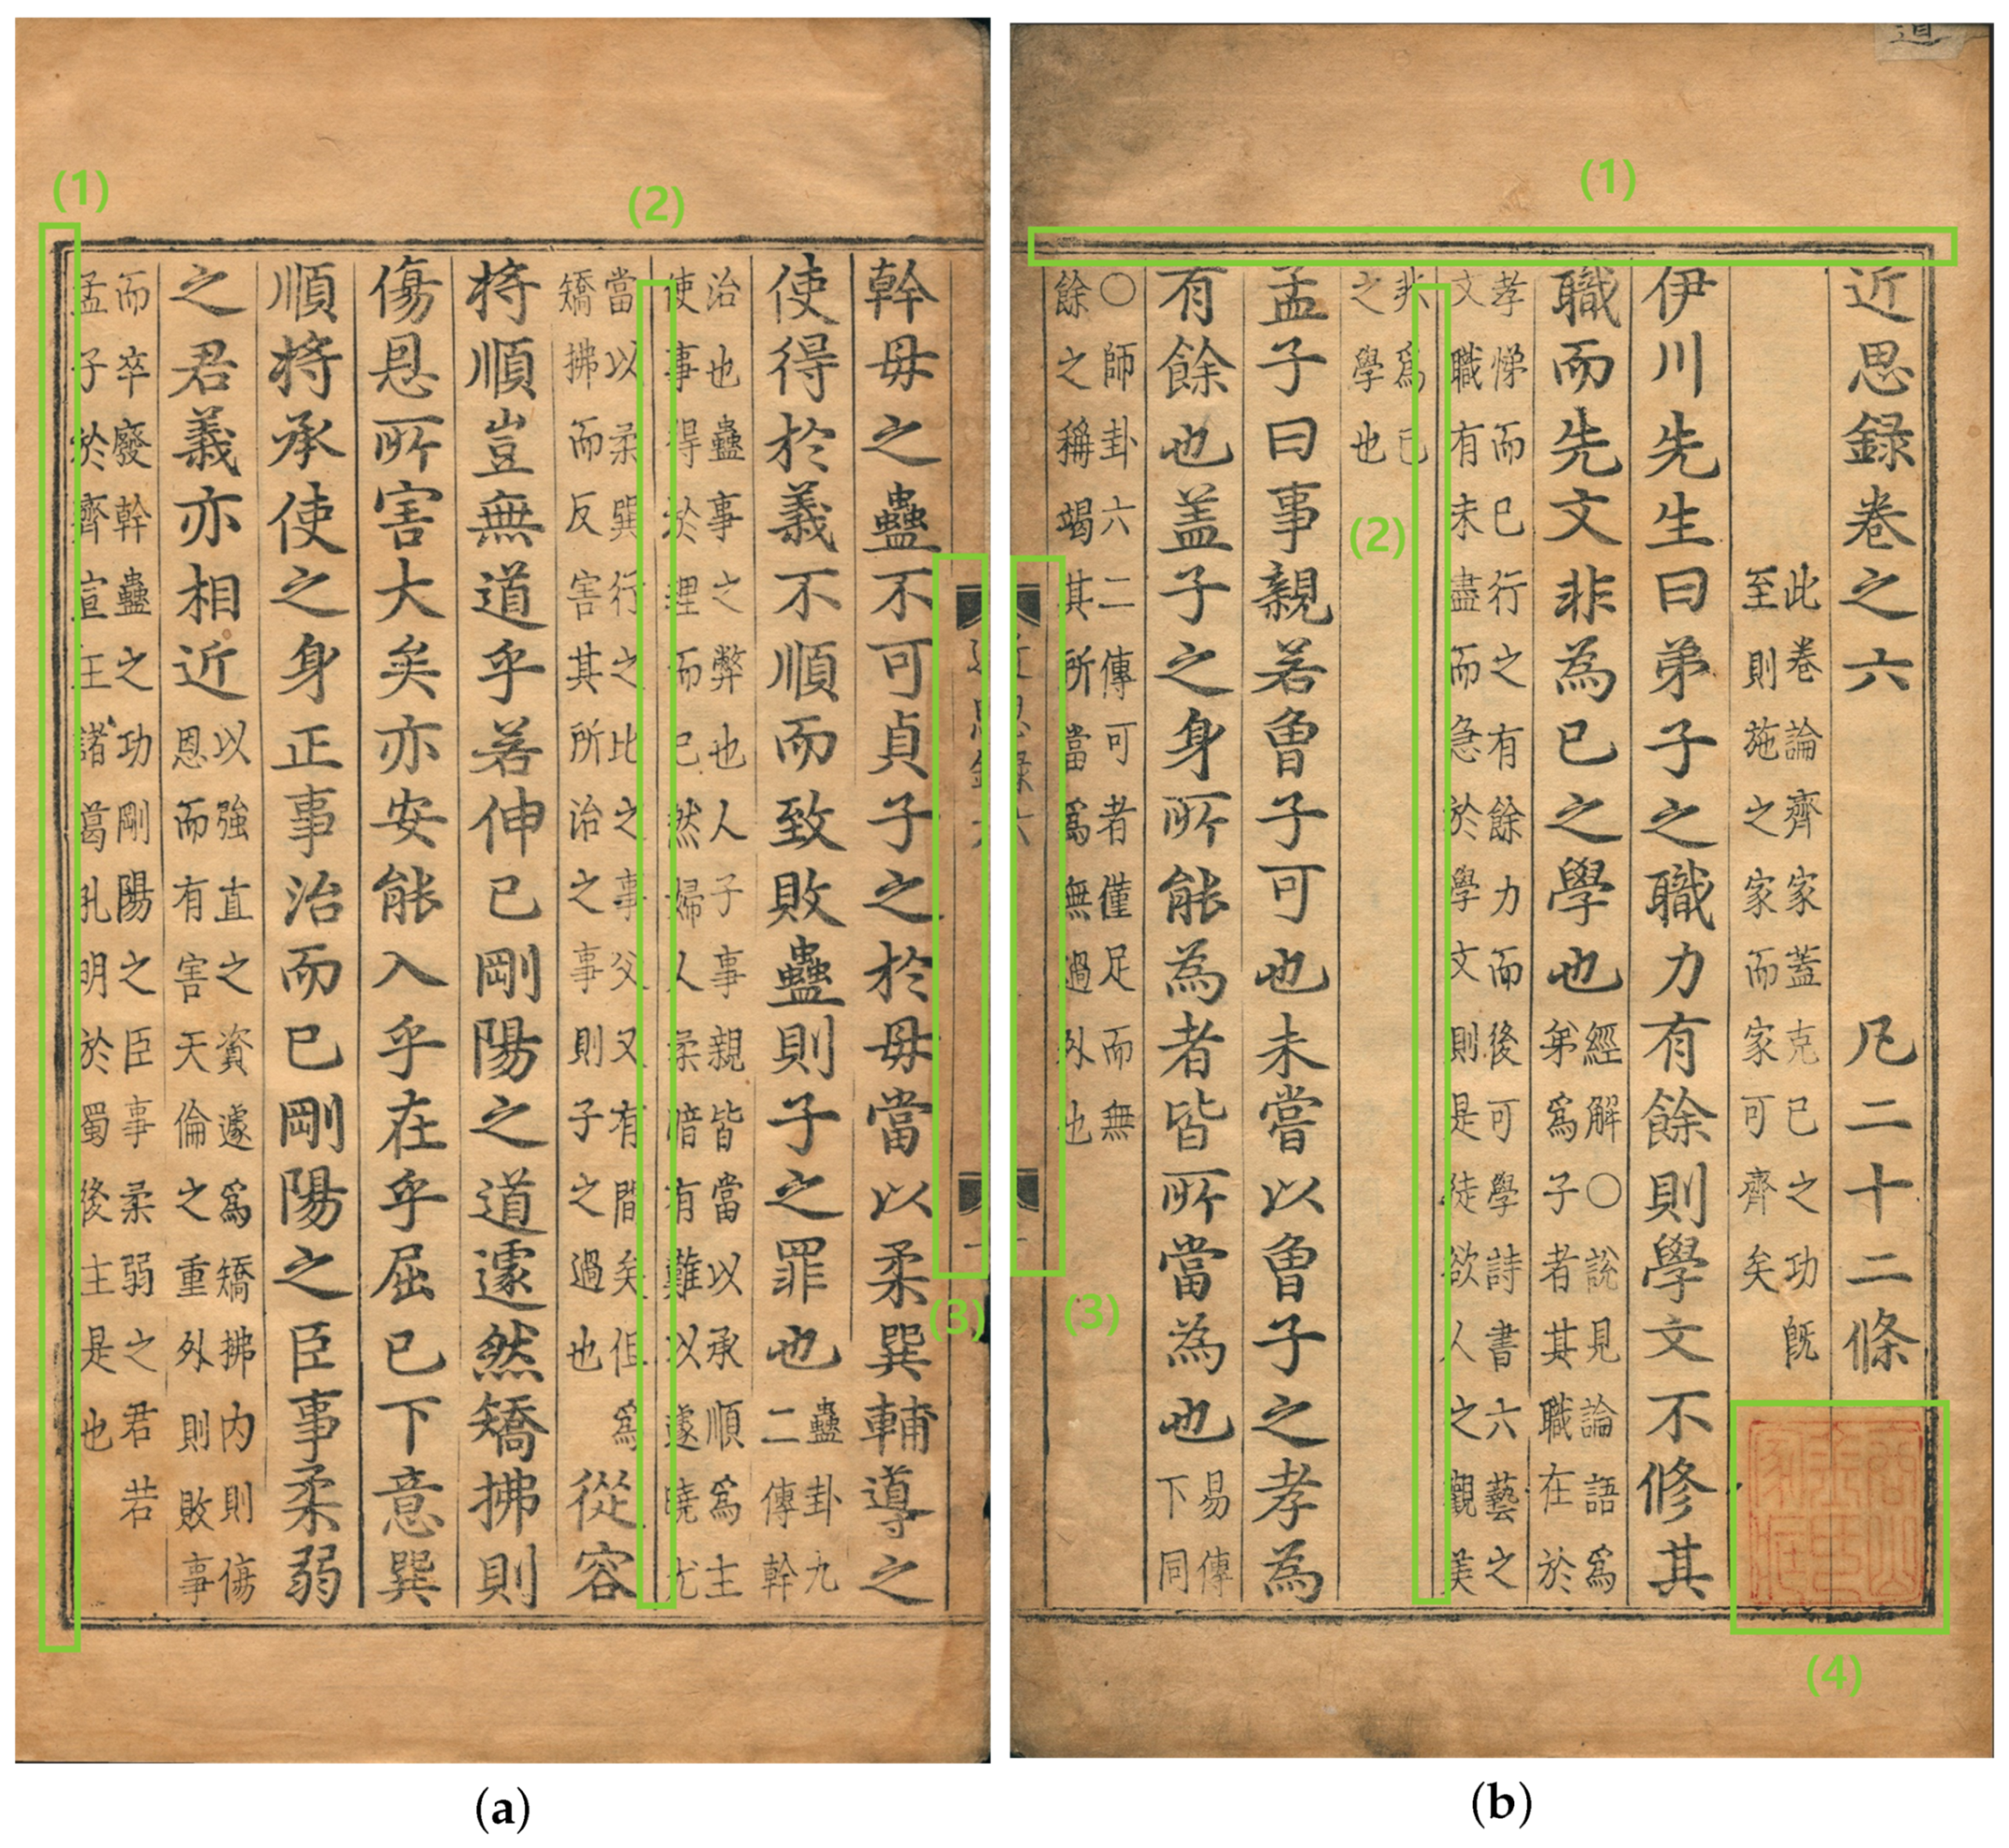 道
(1)
近思錄卷之六 凡二十二條
此卷論齊家蓋克己之功旣
至則施之家而家可齊矣
伊川先生曰弟子之職力有餘則學文不修其
職而先文非為己之學也
經解○說見論語爲
弟爲子者其職在於
孝悌而已行之有餘力而後可學詩書六藝之
文職有未盡而急於學文則是徒欲人之觀美
(2)
非爲己
之學也
孟子曰事親若曾子可也未嘗以曾子之孝為
有餘也盖子之身所能為者皆所當為也
易傳
下同
○師卦六二傳可者僅足而無
餘之稱竭其所當爲無過外也
近思錄六
一
(3)
(4)
(b)
(1)
(2)
(3)
近思錄六
一
幹母之蠱不可貞子之於母當以柔巽輔導之
使得於義不順而致敗蠱則子之罪也
蠱卦九
二傳幹
治也蠱事之弊也人子事親皆當以承順爲主
使事得於理而已然婦人柔暗有難以遽曉尤
當以柔巽行之比之事父又有間矣但爲
矯拂而反害其所治之事則子之過也
從容
将順豈無道乎若伸己剛陽之道遽然矯拂則
傷恩所害大矣亦安能入乎在乎屈己下意巽
順将承使之身正事治而已剛陽之臣事柔弱
之君義亦相近
以強直之資遽爲矯拂內則傷
恩而有害天倫之重外則敗事
而卒廢幹蠱之功剛陽之臣事柔弱之君若
孟子於齊宣王諸葛孔明於蜀後主是也
(a)